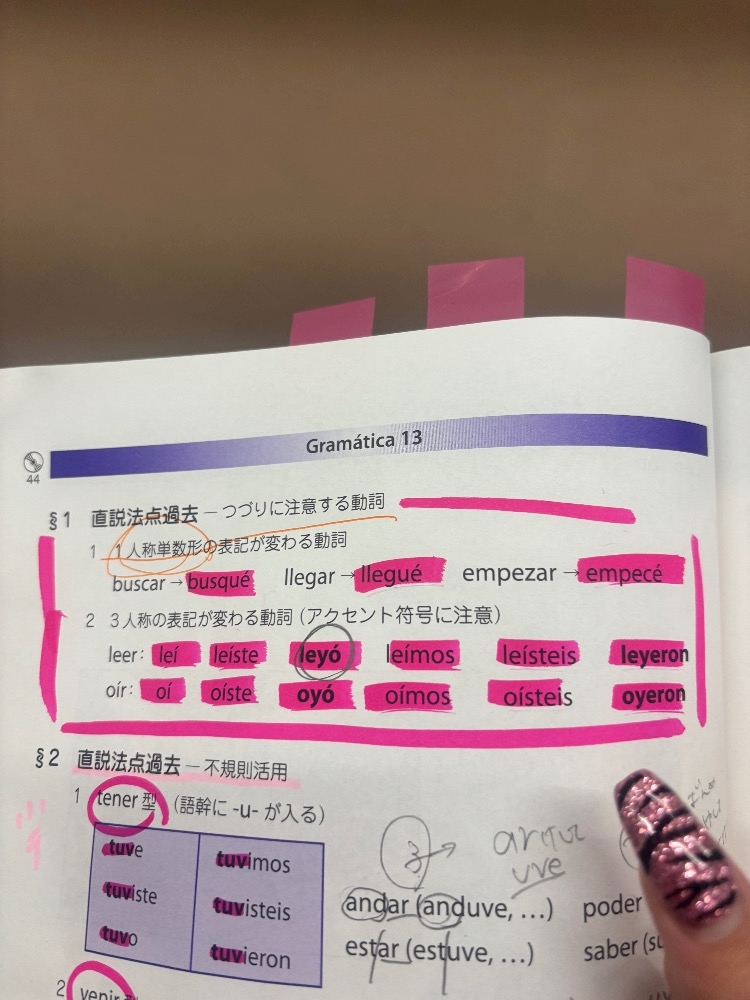 Gramática 13
44
§1 直説法点過去 — つづりに注意する動詞
1 1人称単数形の表記が変わる動詞
buscar → busqué llegar → llegué empezar → empecé
2 3人称の表記が変わる動詞 (アクセント符号に注意)
leer: leí leíste leyó leímos leísteis leyeron
oír: oí oíste oyó oímos oísteis oyeron
§2 直説法点過去 — 不規則活用
1 tener型 (語幹に -u- が入る)
tuve tuvimos
tuviste tuvisteis
tuvo tuvieron
uve
andar (anduve, ...) poder
estar (estuve, ...) saber
2 venir型